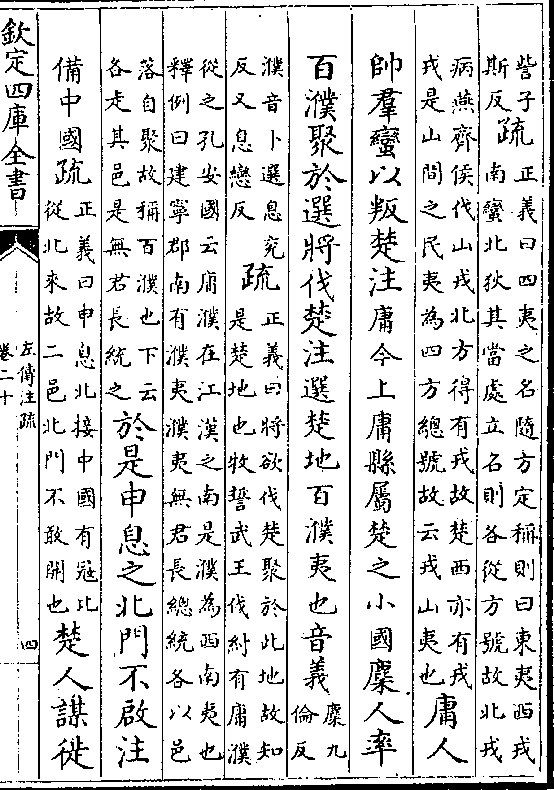 訾子
斯反
疏
正義曰四夷之名隨方定稱則曰東夷西戎
南蠻北狄其當處立名則各從方號故北戎
病燕齊侯伐山戎北方得有戎故楚西亦有戎
戎是山間之民夷為四方總號故云戎山夷也
庸人
帥羣蠻以叛楚注庸今上庸縣屬楚之小國麇人率
百濮聚於選將伐楚注選楚地百濮夷也音義
麇九
倫反
濮音卜選息兖
反又息戀反
疏
正義曰將欲伐楚聚於此地故知
是楚地也牧誓武王伐紂有庸濮
從之孔安國云庸濮在江漢之南是濮為西南夷也
釋例曰建寧郡南有濮夷濮夷無君長總統各以邑
落自聚故稱百濮也下云
各走其邑是無君長統之
於是申息之北門不啟注
備中國疏
正義曰申息北接中國有冦比
從北來故二邑北門不敢開也
楚人謀徙
欽定四庫全書
左傳注疏
卷二十
四